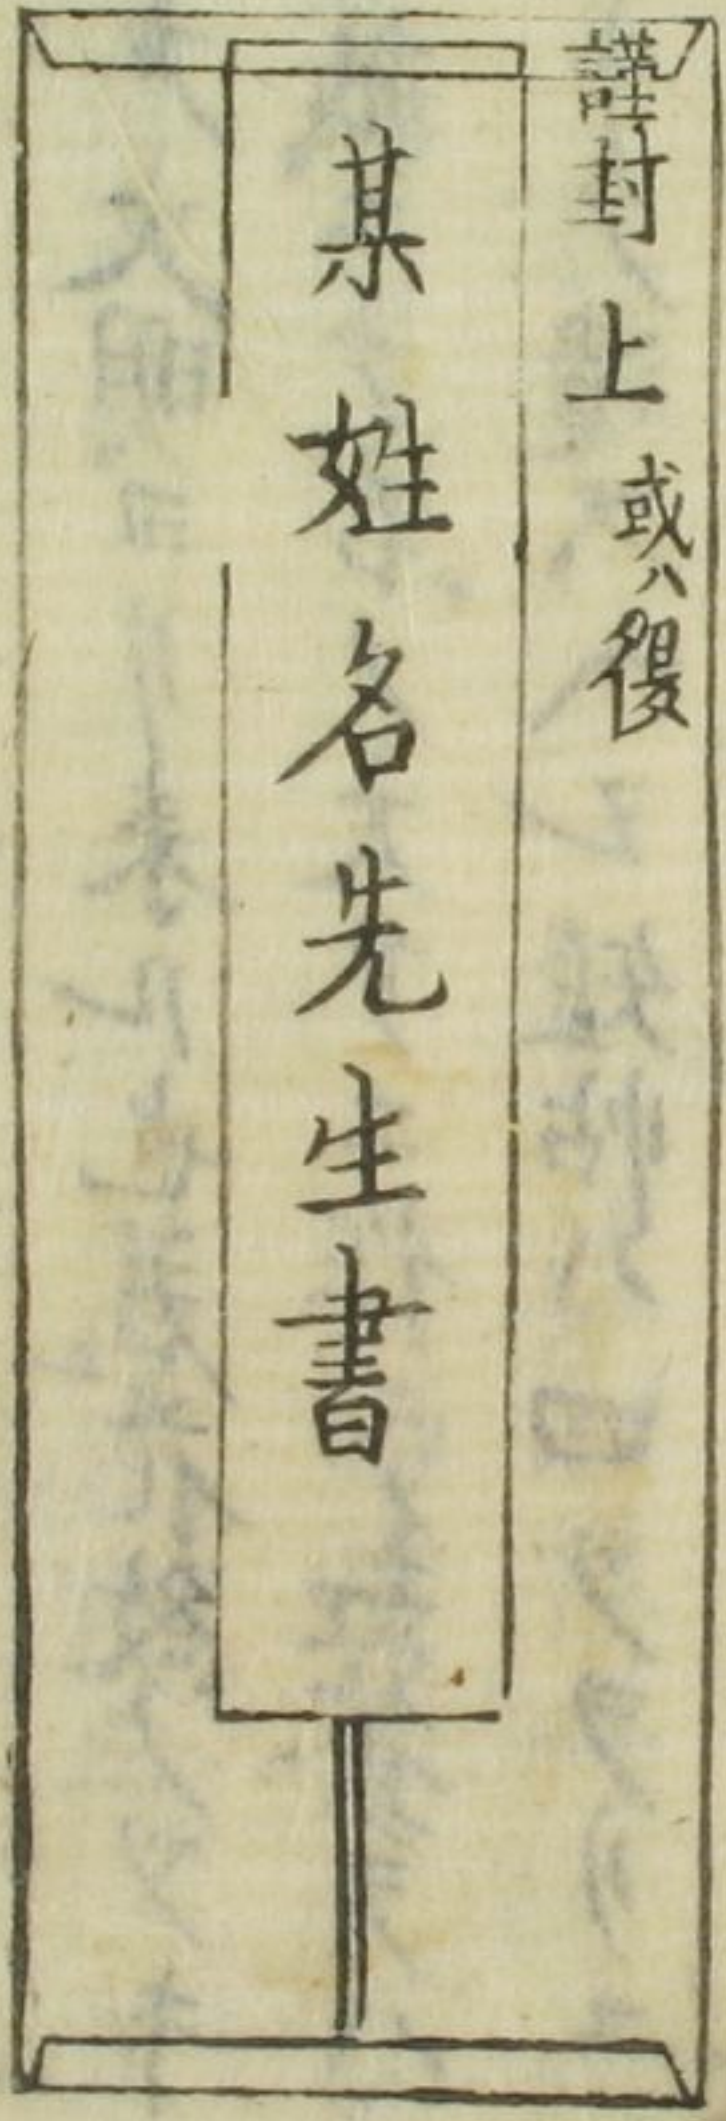 謹封上或ハ復
某姓名先生書